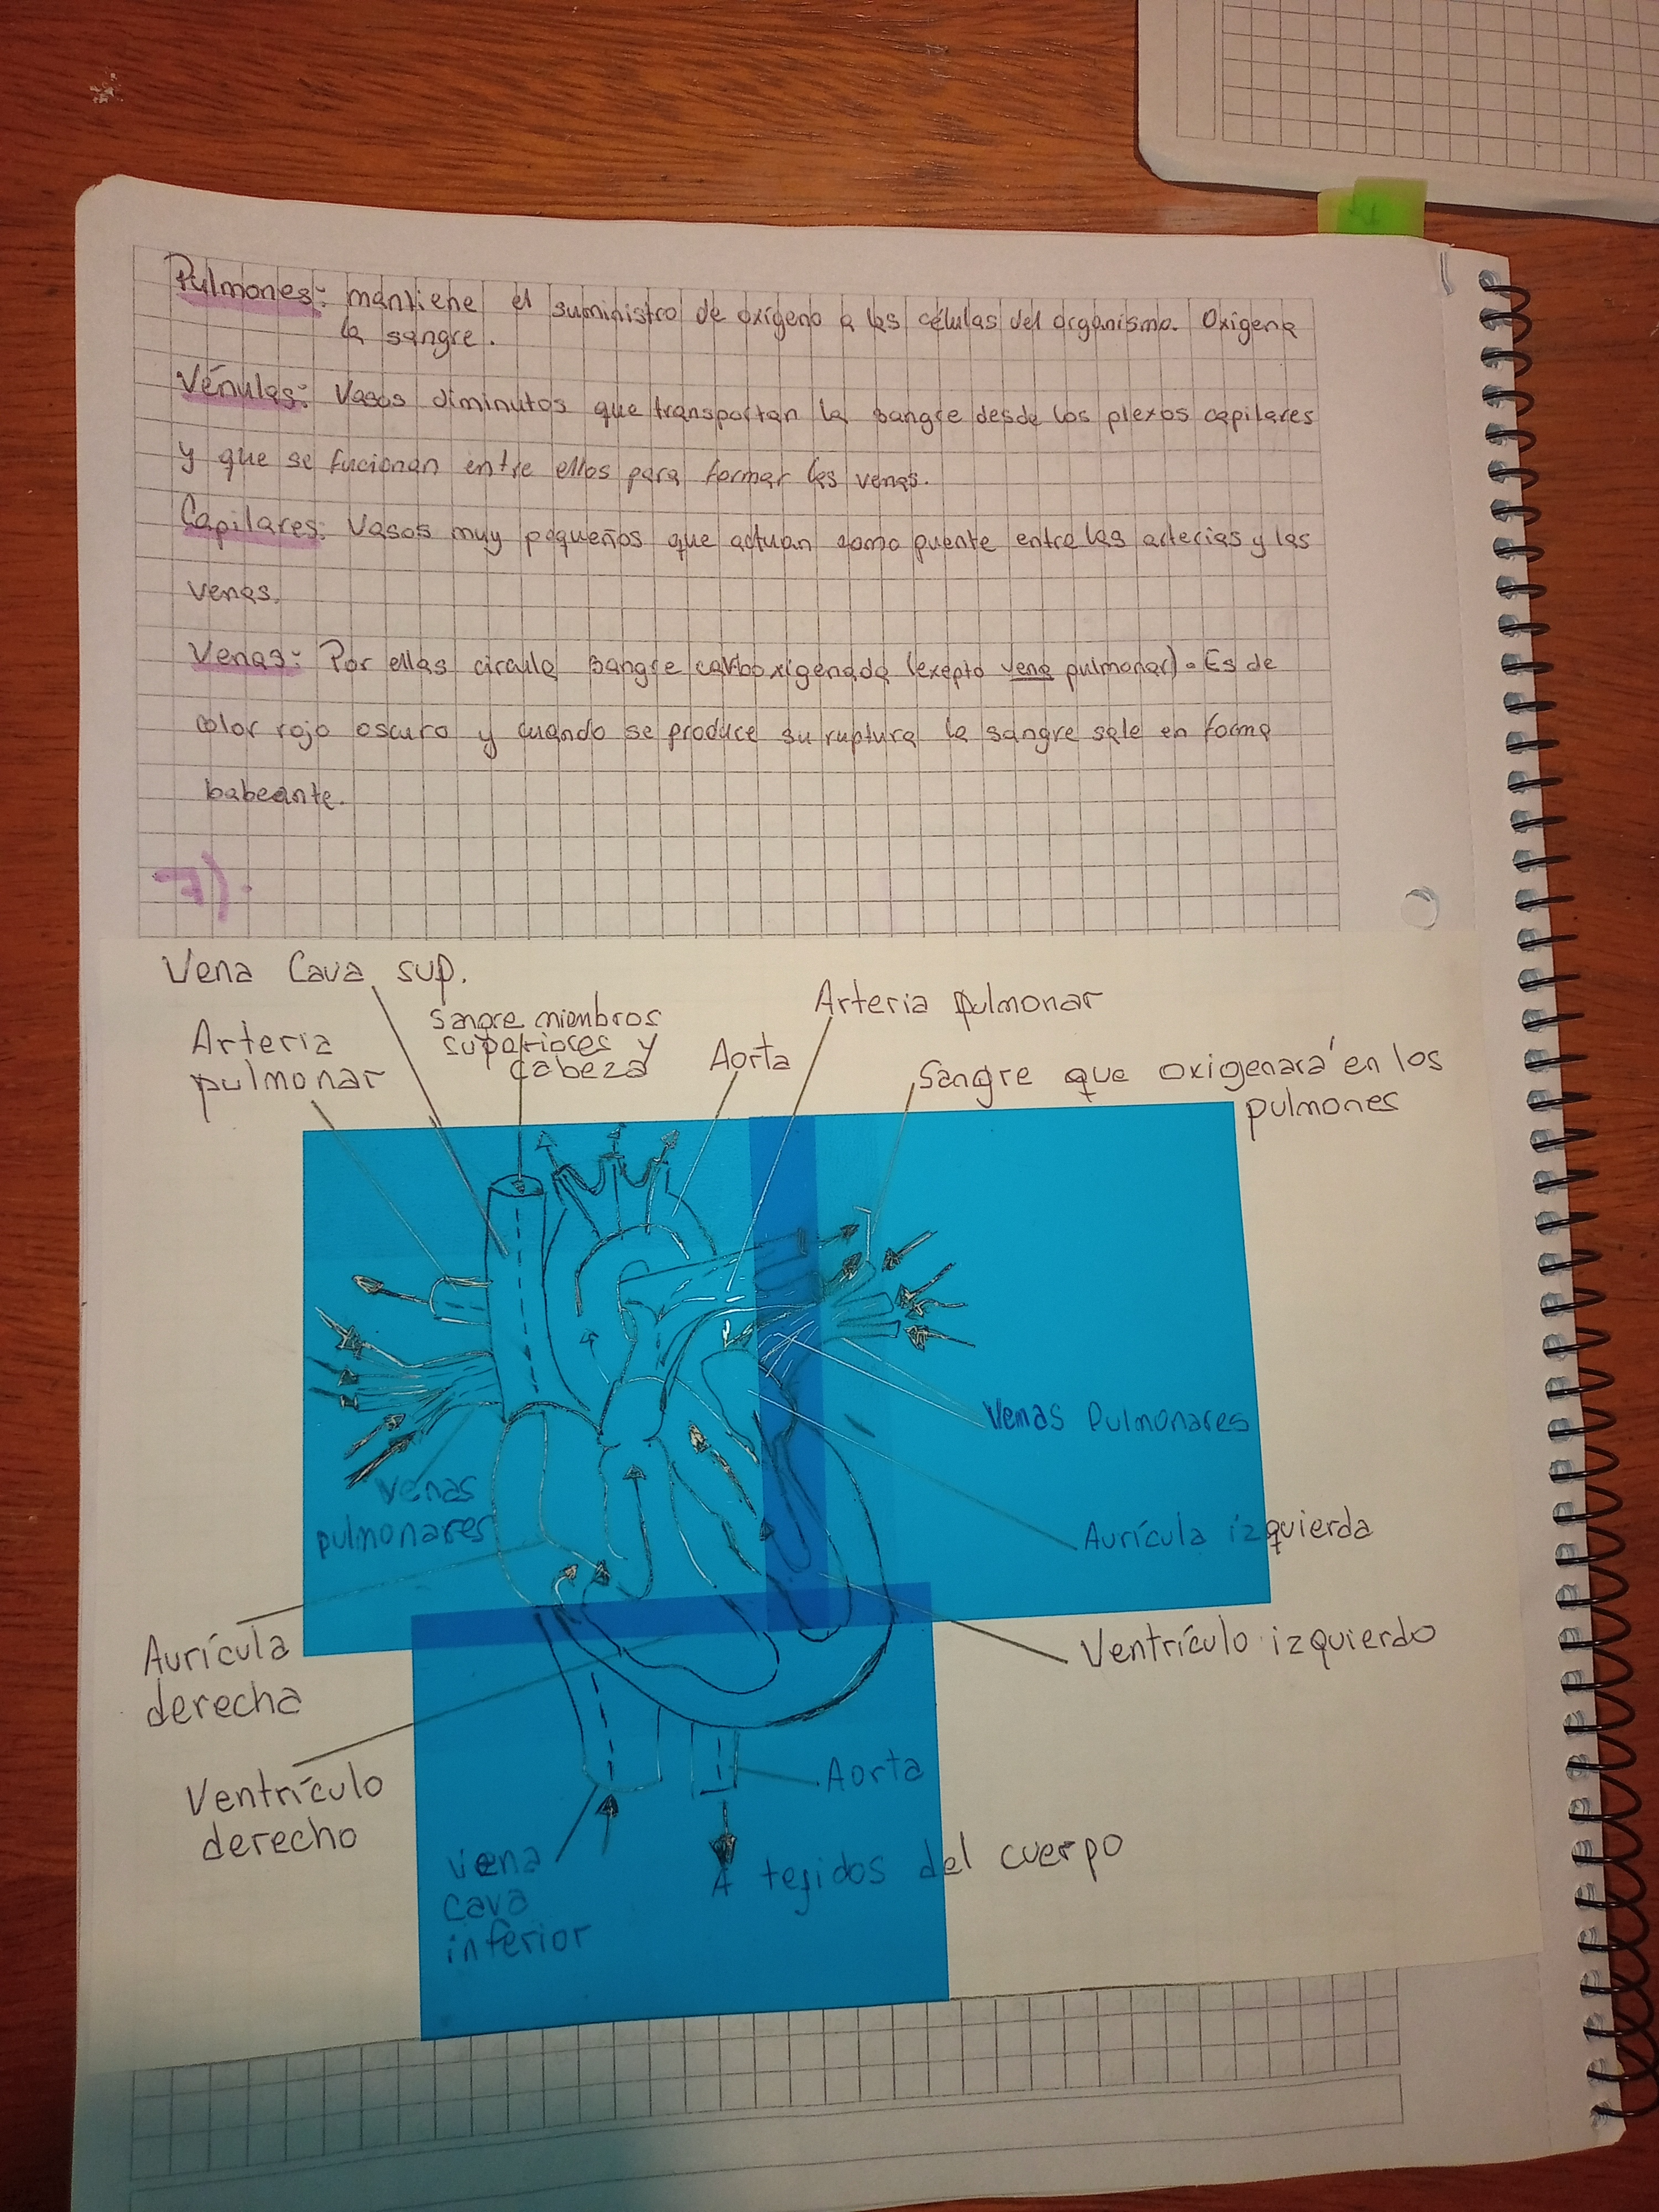 Pulmones: mantiene el suministro de oxígeno a las células del organismo. Oxigena
la sangre.
Vénulas: Vasos diminutos que transportan la sangre desde los plexos capilares
y que se fucionan entre ellos para formar las venas.
Capilares: Vasos muy pequeños que actuan como puente entre las arterias y las
venas.
Venas: Por ellas circula sangre carboxigenada (exepto vena pulmonar). Es de
color rojo oscuro y cuando se produce su ruptura la sangre sale en forma
babeante.
7).
Vena Cava sup.
Arteria
pulmonar
Sangre miembros
superiores y
cabeza
Aorta
Arteria pulmonar
Sangre que oxigenará en los
pulmones
Venas Pulmonares
Venas
pulmonares
Aurícula izquierda
Aurícula
derecha
Ventrículo izquierdo
Ventrículo
derecho
Aorta
Vena
cava
inferior
A tejidos del cuerpo